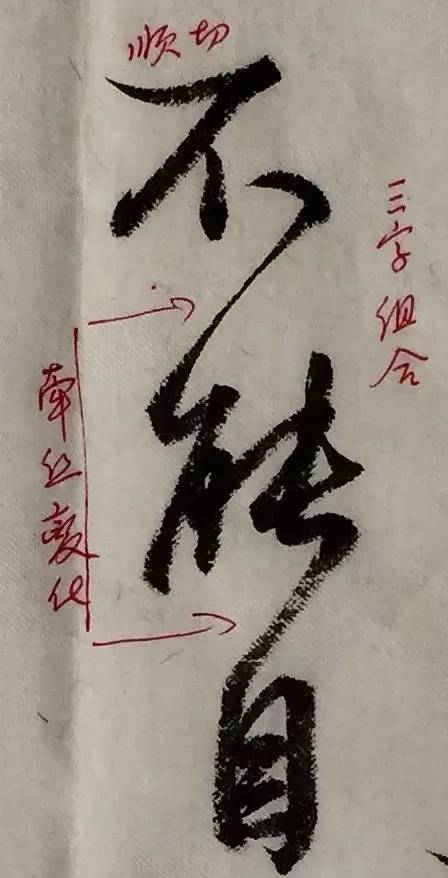 顺切
不能自
三字组合
牵丝变化